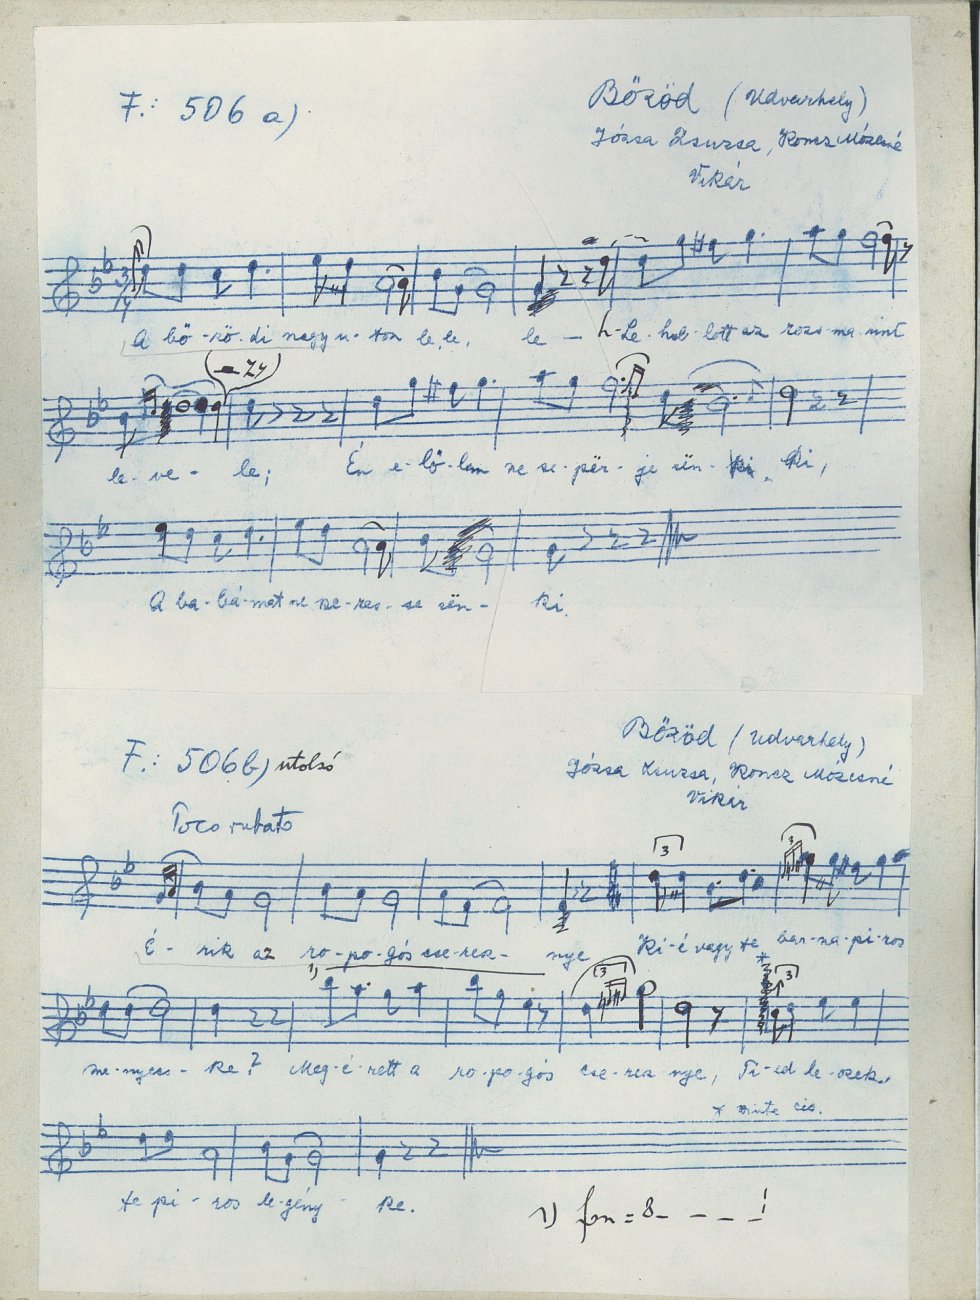 F.: 506 a)
Bőzöd (Udvarhely)
Józsa Zsuzsa, Koncz Mózesné
Vikár
A bö-rö-di nagy u-ton le, le, le — h-Le-hul-lott az rozs-ma-rint
le-ve-le;
Én e-lő-lem ne se-për-je sën-ki,
A ba-bá-mat ne ke-res-se sën-ki.
F.: 506 b) utolsó
Bőzöd (Udvarhely)
Józsa Zsuzsa, Koncz Mózesné
Vikár
Poco rubato
3 3
É-rik az ro-po-gós cse-resz-nye Ki-é vagy te bar-na-pi-ros
1) * 3 3
me-nyecs-ke? Meg-é-rett a ro-po-gós cse-resz-nye, Ti-ed le-szek,
* minte cis.
te pi-ros le-gény-ke.
1) fon = 8- - - - !